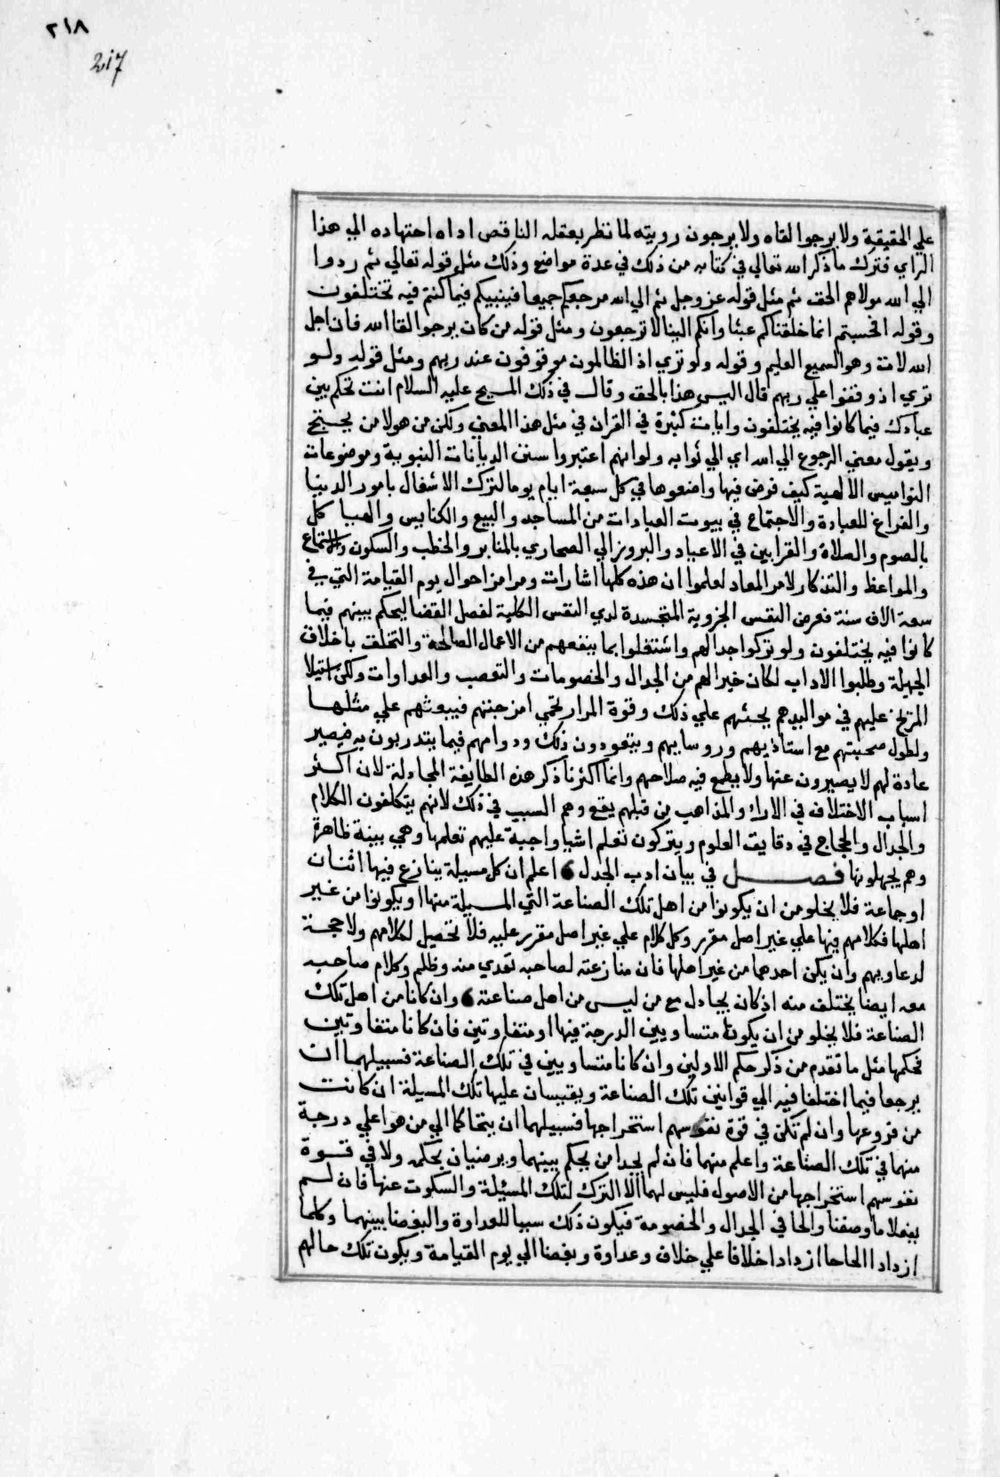 ٢١٨
217
علي الحقيقية ولا يرجوا لقاه ولا يرجون رويته لما نظر بعقله الناقص اداه احتهاده الي هذا
الراي فترك ما ذكر الله تعالي في كتابه من ذلك في عدة مواضع وذلك مثل قوله تعالي ثم ردوا
الي الله مولاهم الحق ثم مثل قوله عز وجل ثم الي الله مرجعكم جميعا فينبيكم فيما كنتم فيه تختلفون
وقوله افحسبتم انما خلقناكم عبثا وانكم الينا لا ترجعون ومثل قوله من كان يرجوا لقا الله فان اجل
الله لات وهو السميع العليم وقوله ولو تري اذ الظالمون موقوفون عند ربهم ومثل قوله ولو
تري اذ وقفوا علي ربهم قال اليس هذا بالحق وقال في ذلك المسيح عليه السلام انت تحكم بين
عبادك فيما كانوا فيه يختلفون وايات كثيرة في القران في مثل هذا المعني ولكن من هولا من يحتج
ويقول معني الرجوع الي الله اي الي ثوابه ولو انهم اعتبروا سنن الديانات النبوية وموضوعات
النواميس الالهية كيف فرض فيها واضعوها في كل سبعة ايام يوما لترك الاشغال بامور الدنيا
والفراغ للعبادة والاجتماع في بيوت العبادات من المساجد والبيع والكنايس والهياكل
بالصوم والصلاة والقرابين في الاعياد والبروز الي الصحاري بالمنابر والخطب والسكون والاستماع
والمواعظ والتذكار لامر المعاد لعلموا ان هذه كلها اشارات ومرامز احوال يوم القيامة التي في
سبعة الاف سنة فعرض النفس الجزوية المتجسدة لدي النفس الكلية لفصل القضا ليحكم بينهم فيما
كانوا فيه يختلفون ولو تركوا جدالهم واشتغلوا بما ينفعهم من الاعمال الصالحة والتخلق باخلاق
الجميلة وطلبوا الاداب لكان خيرا لهم من الجدال والخصومات والتعصب والعداوات ولكن استيلا
المريخ عليهم في مواليدهم يحثهم علي ذلك وقوة المرار يحمي امزجتهم فيبعثهم علي مثلها
ولطول صحبتهم مع استاذيهم وروسايهم ويتعودون ذلك ودوامهم فيما يتدربون به فيصير
عادة لهم لا يصيرون عنها ولا يطمع فيه صلاحهم وانما اكثرنا ذكر هذه الطايفة المجادلة لان اكثر
اسباب الاختلاف في الارا والمذاهب من قبلهم يقع وهم السبب في ذلك لانهم يتكلفون الكلام
والجدال والحجاج في دقايق العلوم ويتركون تعلم اشيا واجبة عليهم تعلمها وهي بينة ظاهرة
وهم يجهلونها فصل في بيان ادب الجدل اعلم ان كل مسيلة ينازع فيها اثنان
او جماعة فلا يخلو من ان يكونوا من اهل تلك الصناعة التي المسيلة منها او يكونوا من غير
اهلها فكلامهم فيها علي غير اصل مقرر وكل كلام علي غير اصل مقرر عليه فلا تحصيل لكلامهم ولا حجة
لدعاويهم وان يكن احدهما من غير اهلها فان منازعته لصاحبه تعدي منه وظلم وكلام صاحبه
معه ايضا يختلف منه اذ كان يجادل مع من ليس من اهل صناعته وان كانا من اهل تلك
الصناعة فلا يخلو من ان يكونا متساويين الدرجة فيها او متفاوتين فان كانا متفاوتين
فحكمها مثل ما تقدم من ذكر حكم الاولين وان كانا متساويين في تلك الصناعة فسبيلهما ان
يرجعا فيما اختلفا فيه الي قوانين تلك الصناعة ويقيسان عليها تلك المسيلة ان كانت
من فروعها وان لم تكن في قوة نفوسهم استخراجها فسبيلهما ان يتحاكما الي من هو اعلي درجة
منهما في تلك الصناعة واعلم منهما فان لم يجدا من يحكم بينهما ويرضيان بحكمه ولا في قوة
نفوسهم استخراجها من الاصول فليس لهما الا الترك لتلك المسئلة والسكوت عنها فان لم
يفعلا ما وصفنا والحا في الجدال والخصومة فيكون ذلك سببا للعداوة والبغضا بينهما وكلما
ازدادا الحاحا ازدادا خلافا علي خلاف وعداوة وبغضا الي يوم القيامة ويكون تلك حالهم